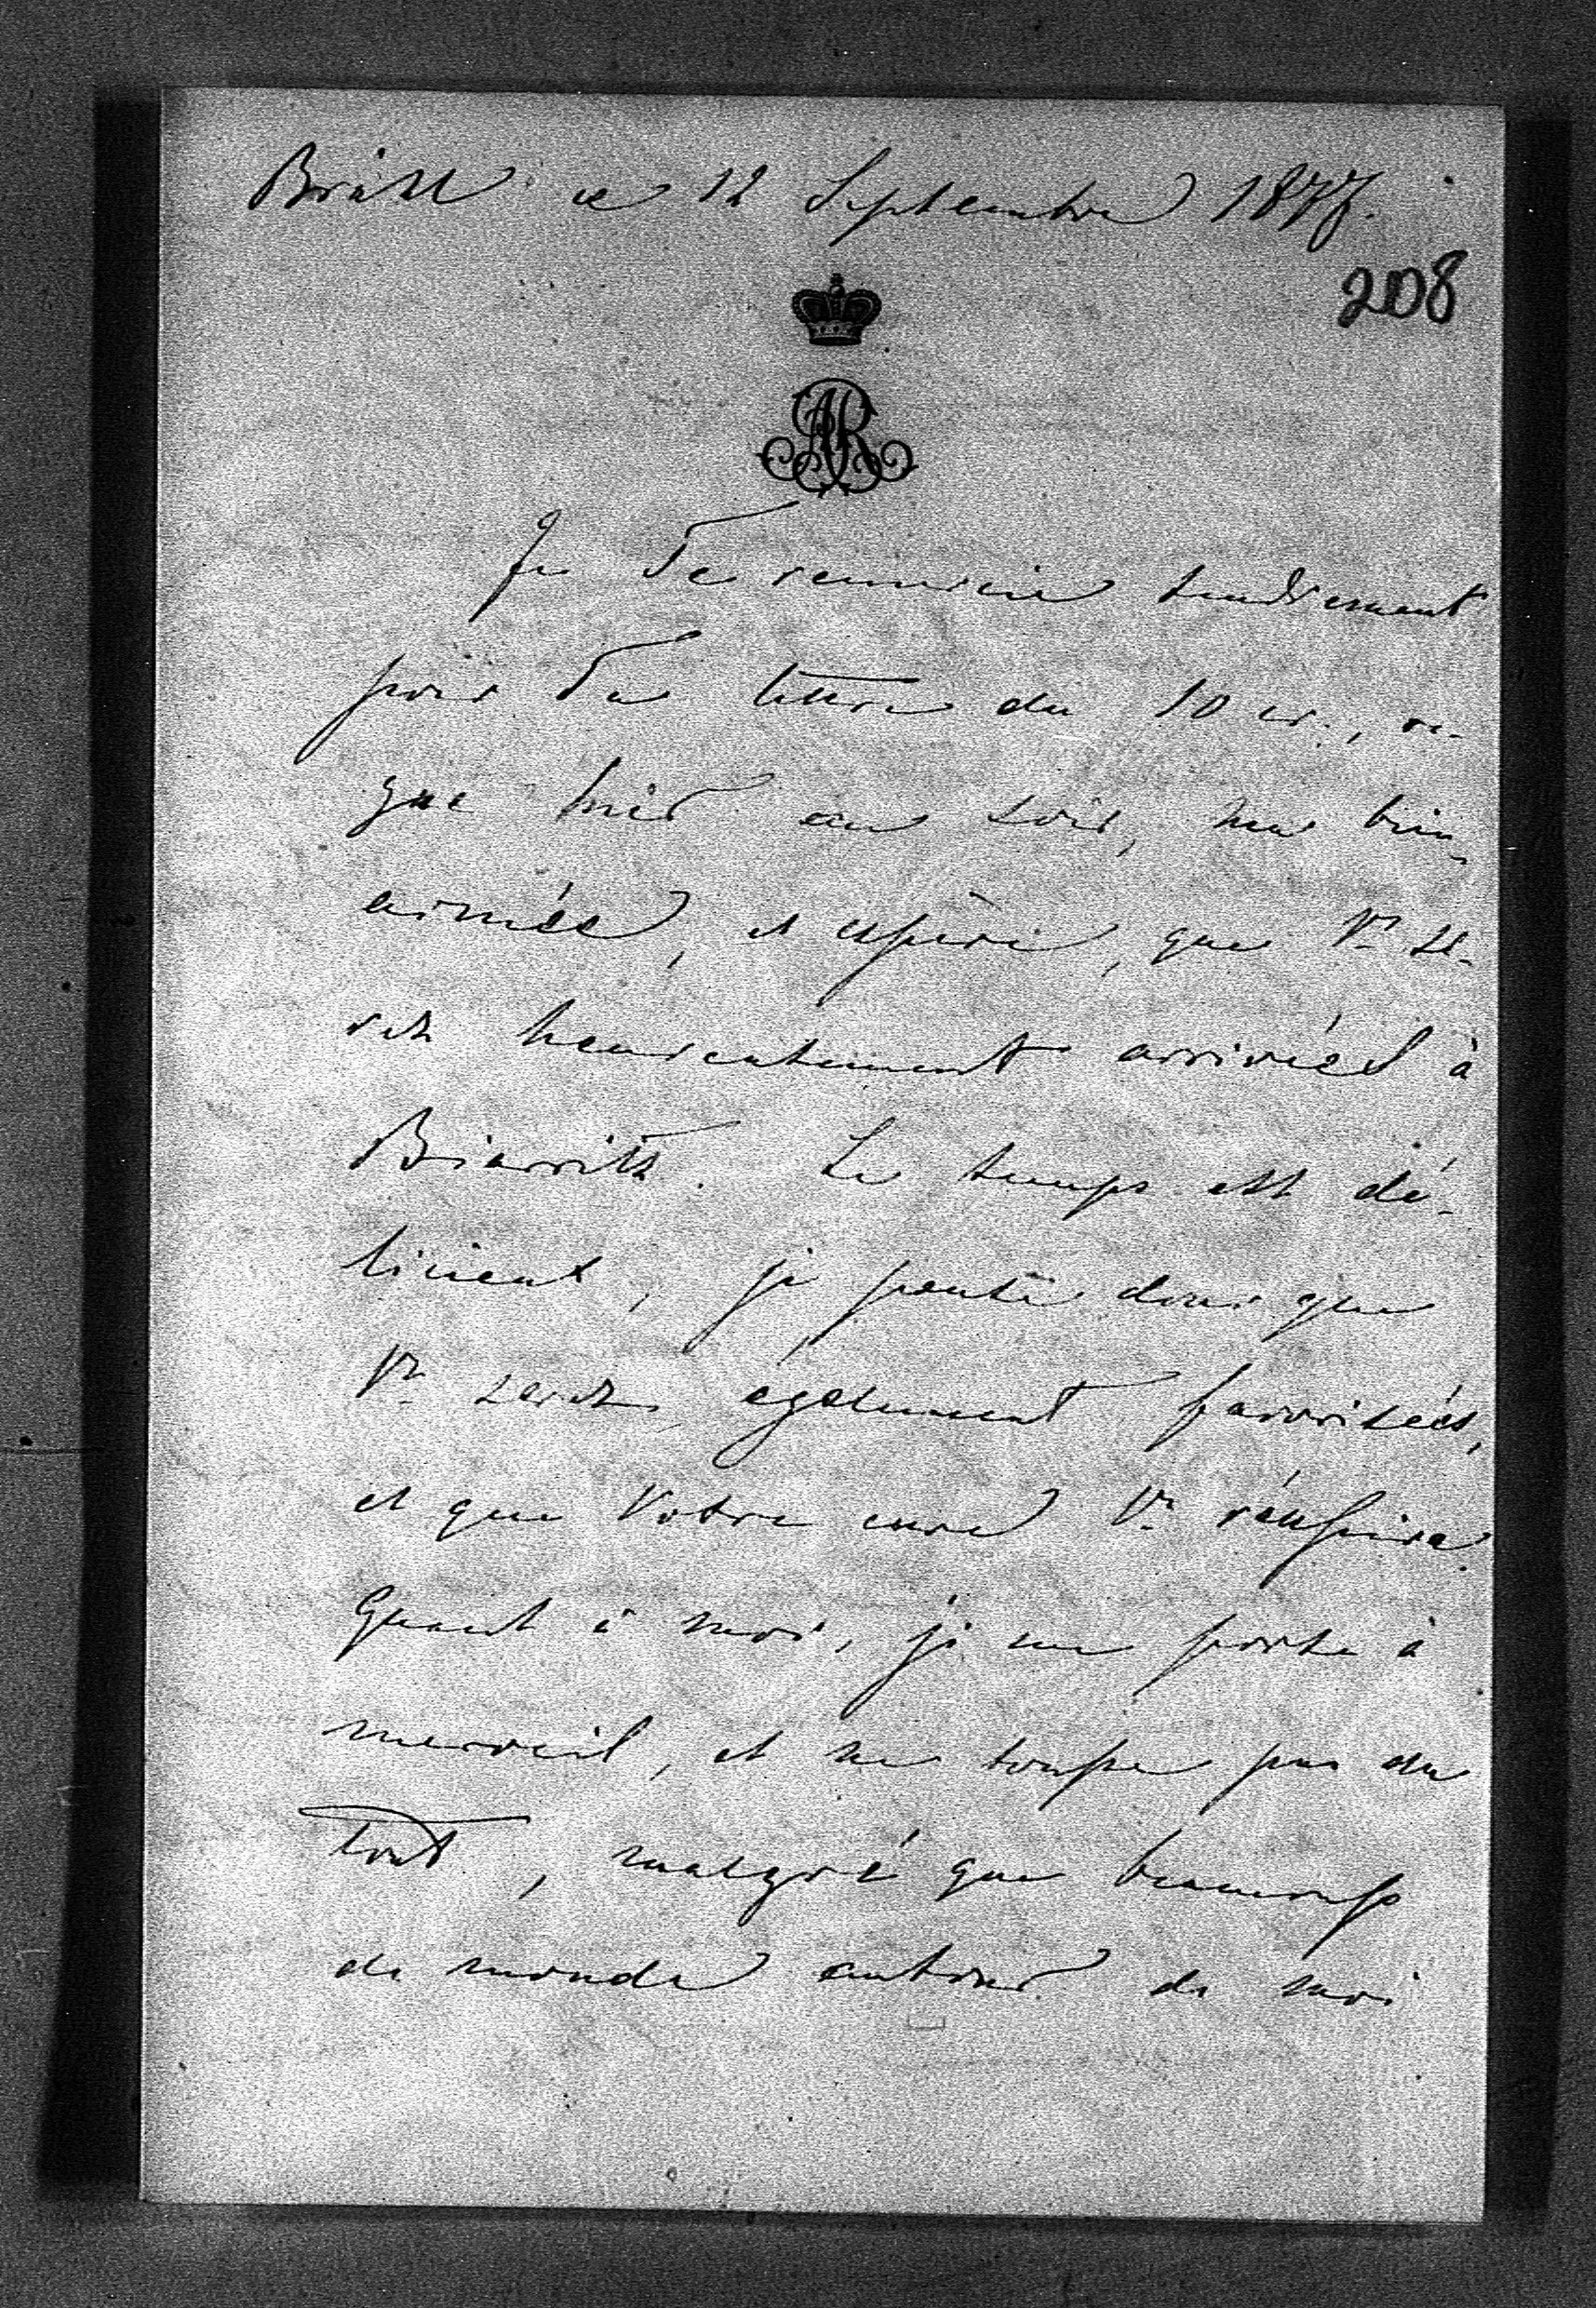 Brühl ce 12 Septembre 1877.
208
AR
Je Te remercie tendrement
pour Ta lettre du 10 cr., re-
çue hier au soir, ma bien
aimée, et espère, que Vs se-
rez heureusement arrivées à
Biarritz. Le temps est dé-
licieux, je pense donc que
Vs serez également favorisées,
et que Votre cure Vs réussira.
Quant à moi, je me porte à
merveil, et ne tousse pas du
tout, malgré que beaucoup
de monde autour de moi